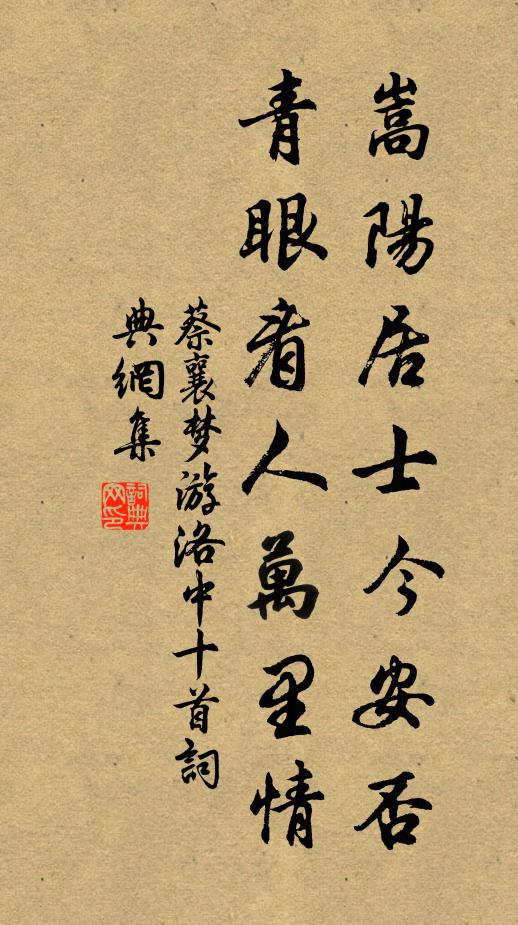 嵩陽居士今安否
青眼看人萬里情
蔡襄梦游洛中十首詞
典網集
詞典
网印